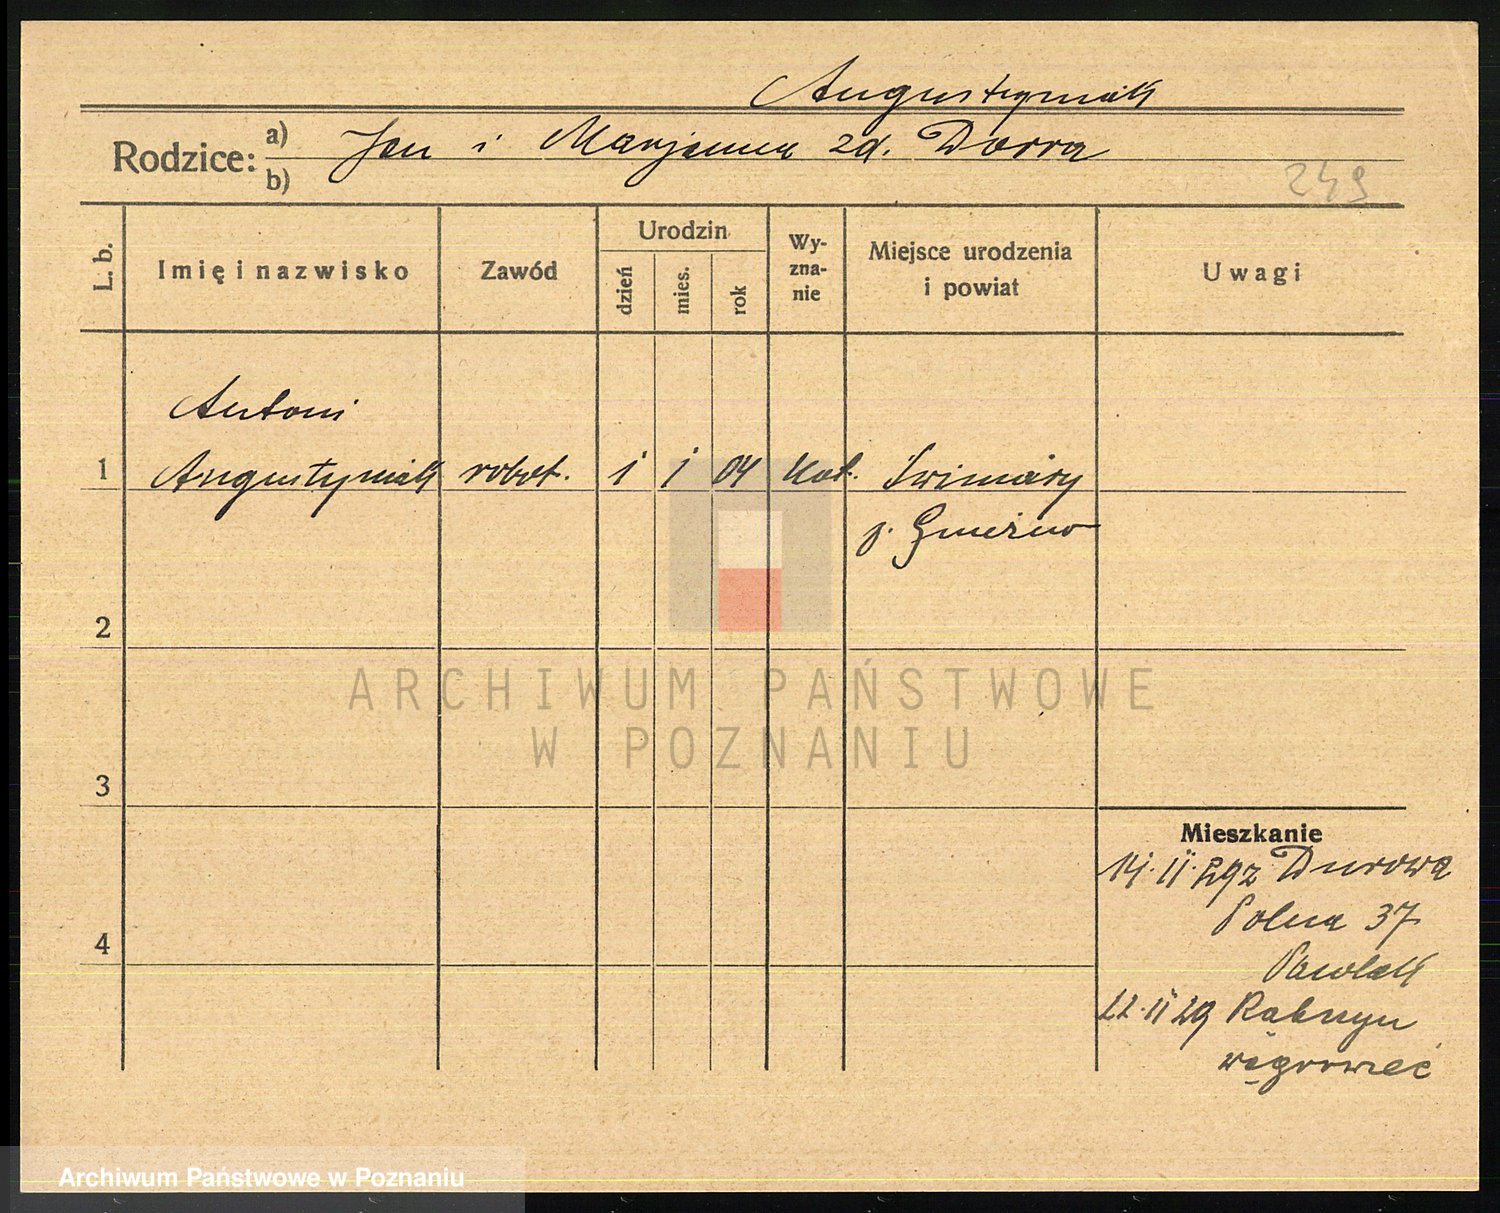 Augustyniak
Rodzice: a) Jan i Marjanna zd. Dorra
b)
249
L. b.
Imię i nazwisko
Zawód
Urodzin
dzień
mies.
rok
Wy-
zna-
nie
Miejsce urodzenia
i powiat
Uwagi
Antoni
1 Augustyniak robot. 1 1 04 kat.
p. Gniezno
2
ARCHIWUM PAŃSTWOWE
W POZNANIU
3
Mieszkanie
14.II.29 z Durowa
Polna 37
4
Pawlak
22.II 29 Rąbczyn
Wągrowiec
Archiwum Państwowe w Poznaniu